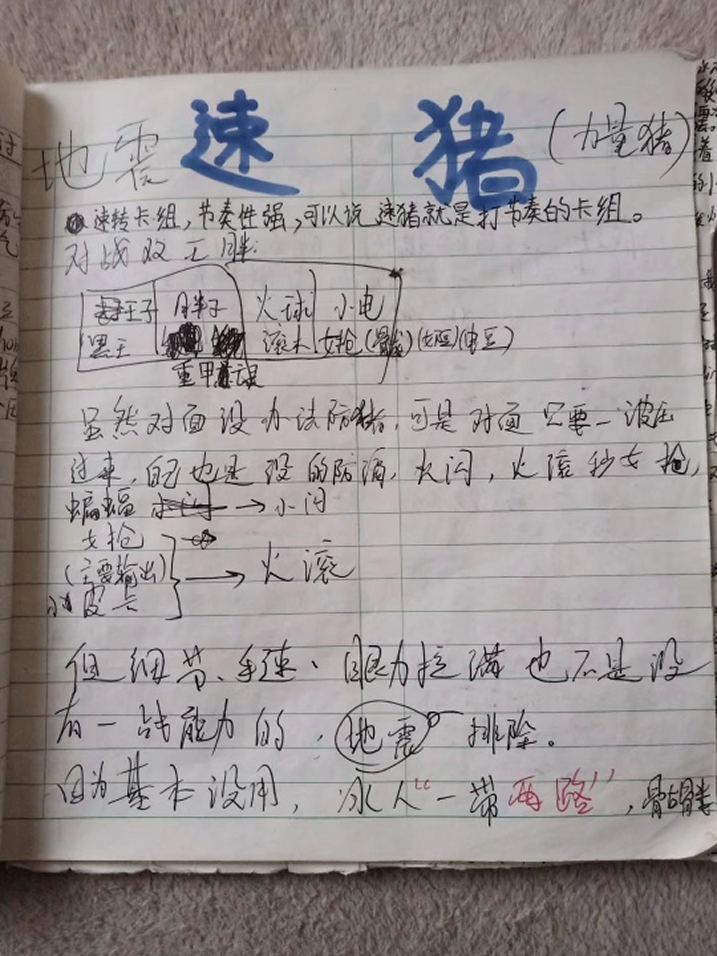 地震 速 猪 (力量猪)
速转卡组,节奏性强,可以说速猪就是打节奏的卡组。
对战双王胖:
王子 胖子 火球 小电
黑王 滚木 女枪(骷髅)
重甲
虽然对面没办法防猪,可是对面只要一波压
过来,自己也是没的防滴,火闪,火滚秒女枪,
蝙蝠 → 小闪
女枪
(主要输出) → 火滚
小皮卡
但细节、手速、眼力拉满也不是没
有一战能力的,地震 排除。
因为基本没用,冰人“一带两路”,骷髅